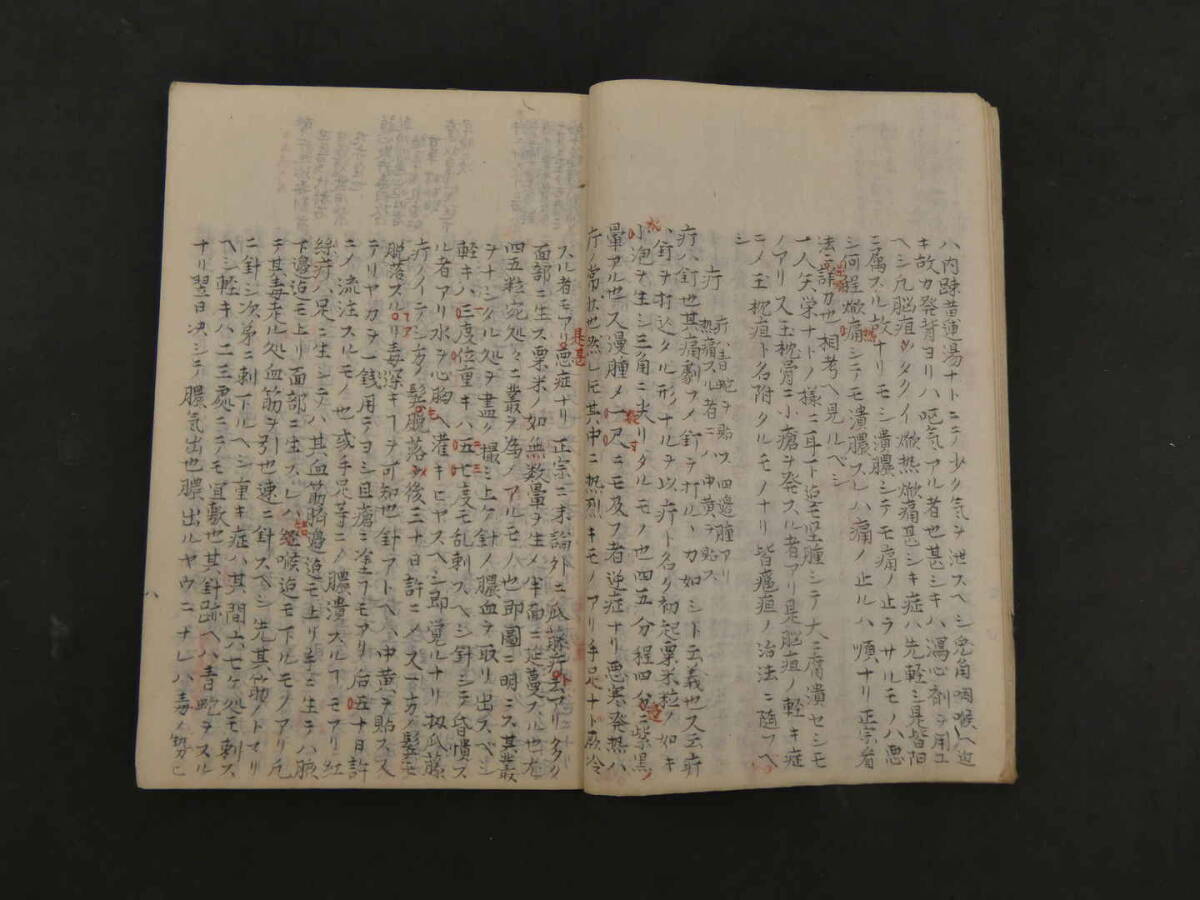 ハ内踈黄連湯ナトニテ少ク気ヲ泄スヘシ兎角咽喉ヘ近
キ故カ発背ヨリハ嘔気アル者也甚シキハ瀉心剤ヲ用ユ
ヘシ凡脳疽ノタクイ焮熱焮痛甚シキ症ハ先軽シ是皆陽
ニ属スル故ナリモシ潰膿シテモ痛ノ止ラサルモノハ悪
シ何程焮痛シテモ潰膿スレハ痛ノ止ルハ順ナリ正宗者
法詳カ也相考ヘ見ルベシ
一人矢栄ナトノ様ニ耳下迄モ堅腫シテ大ニ腐潰セシモ
ノアリ又玉枕骨ニ小瘡ヲ発スル者アリ是脳疽ノ軽キ症
ニノ玉枕疽ト名附タルモノナリ皆癰疽ノ治法ニ随フベ
シ
疔 疔ハ青蛇ヲ貼ス四邉腫アリ
熱痛スル者ニハ中黄ヲ貼ス
疔ハ釘也其痛劇フメ釘テ打ルヽカ如シト云義也又云疔
ハ釘ヲ打込タル形ナルヲ以疔ト名ク初起粟米粒ノ如キ
小泡ヲ生シ三角ニ尖リタルモノ也四五分程四方ニ紫黒
暈アル也又漫腫メ一尺ニモ及フ者逆症ナリ悪寒発熱ハ
疔ノ常状也然レモ其中ニ熱烈キモノアリ手足ナト厥冷
スル者モアリ悪症ナリ 正宗ニ未論外ニ瓜藤疔云アリ多ク
面部ニ生ス粟米ノ如無数暈ヲ生メ半面ニ延蔓スル也尤
四五粒宛処々ニ叢ヲ為ノアルモノ也即圖ニ明ニス其叢
ヲナシタル処ヲ盡ク撮ミ上ケ針ノ膿血ヲ取リ出スベシ
軽キハ三度位重キハ五七度モ乱刺スヘシ針シテ昏憒ス
ル者アリ水ヲ心胸ヘ灌キヒヤスヘシ即覚ルナリ扨瓜藤
疔ノイテシ方ノ髪脱落ノ後三十日許ニメ又一方ノ髪モ
脱落スルアリ毒深キフヲ可知也針アトヘハ中黄ヲ貼ス又
テリヤカヲ一銭用テヨシ且瘡ニ塗フモアリ治五十日許
ニノ流注スルモノ也或手足等ニノ膿潰スルフモアリ紅
絲疔ハ足ニ生シテハ其血筋臍邉迄モ上リ手ニ生テハ腋
下邉迄モ上リ面部ニ生スレハ咽喉迄モ下ルモノアリ凡
テ其毒ナル処血筋ヲ引也速ニ針スベシ先其筋ノトマリ
ニ針シ次第ニ刺下ルヘシ重キ症ハ其間六七ケ処モ刺ス
ヘシ軽キハ二三處ニテモ宜敷也其針跡ヘハ青蛇ヲスル
ナリ翌日決シテ膿気出也膿出ルヤウニナレハ毒ノ勢ヒ
八